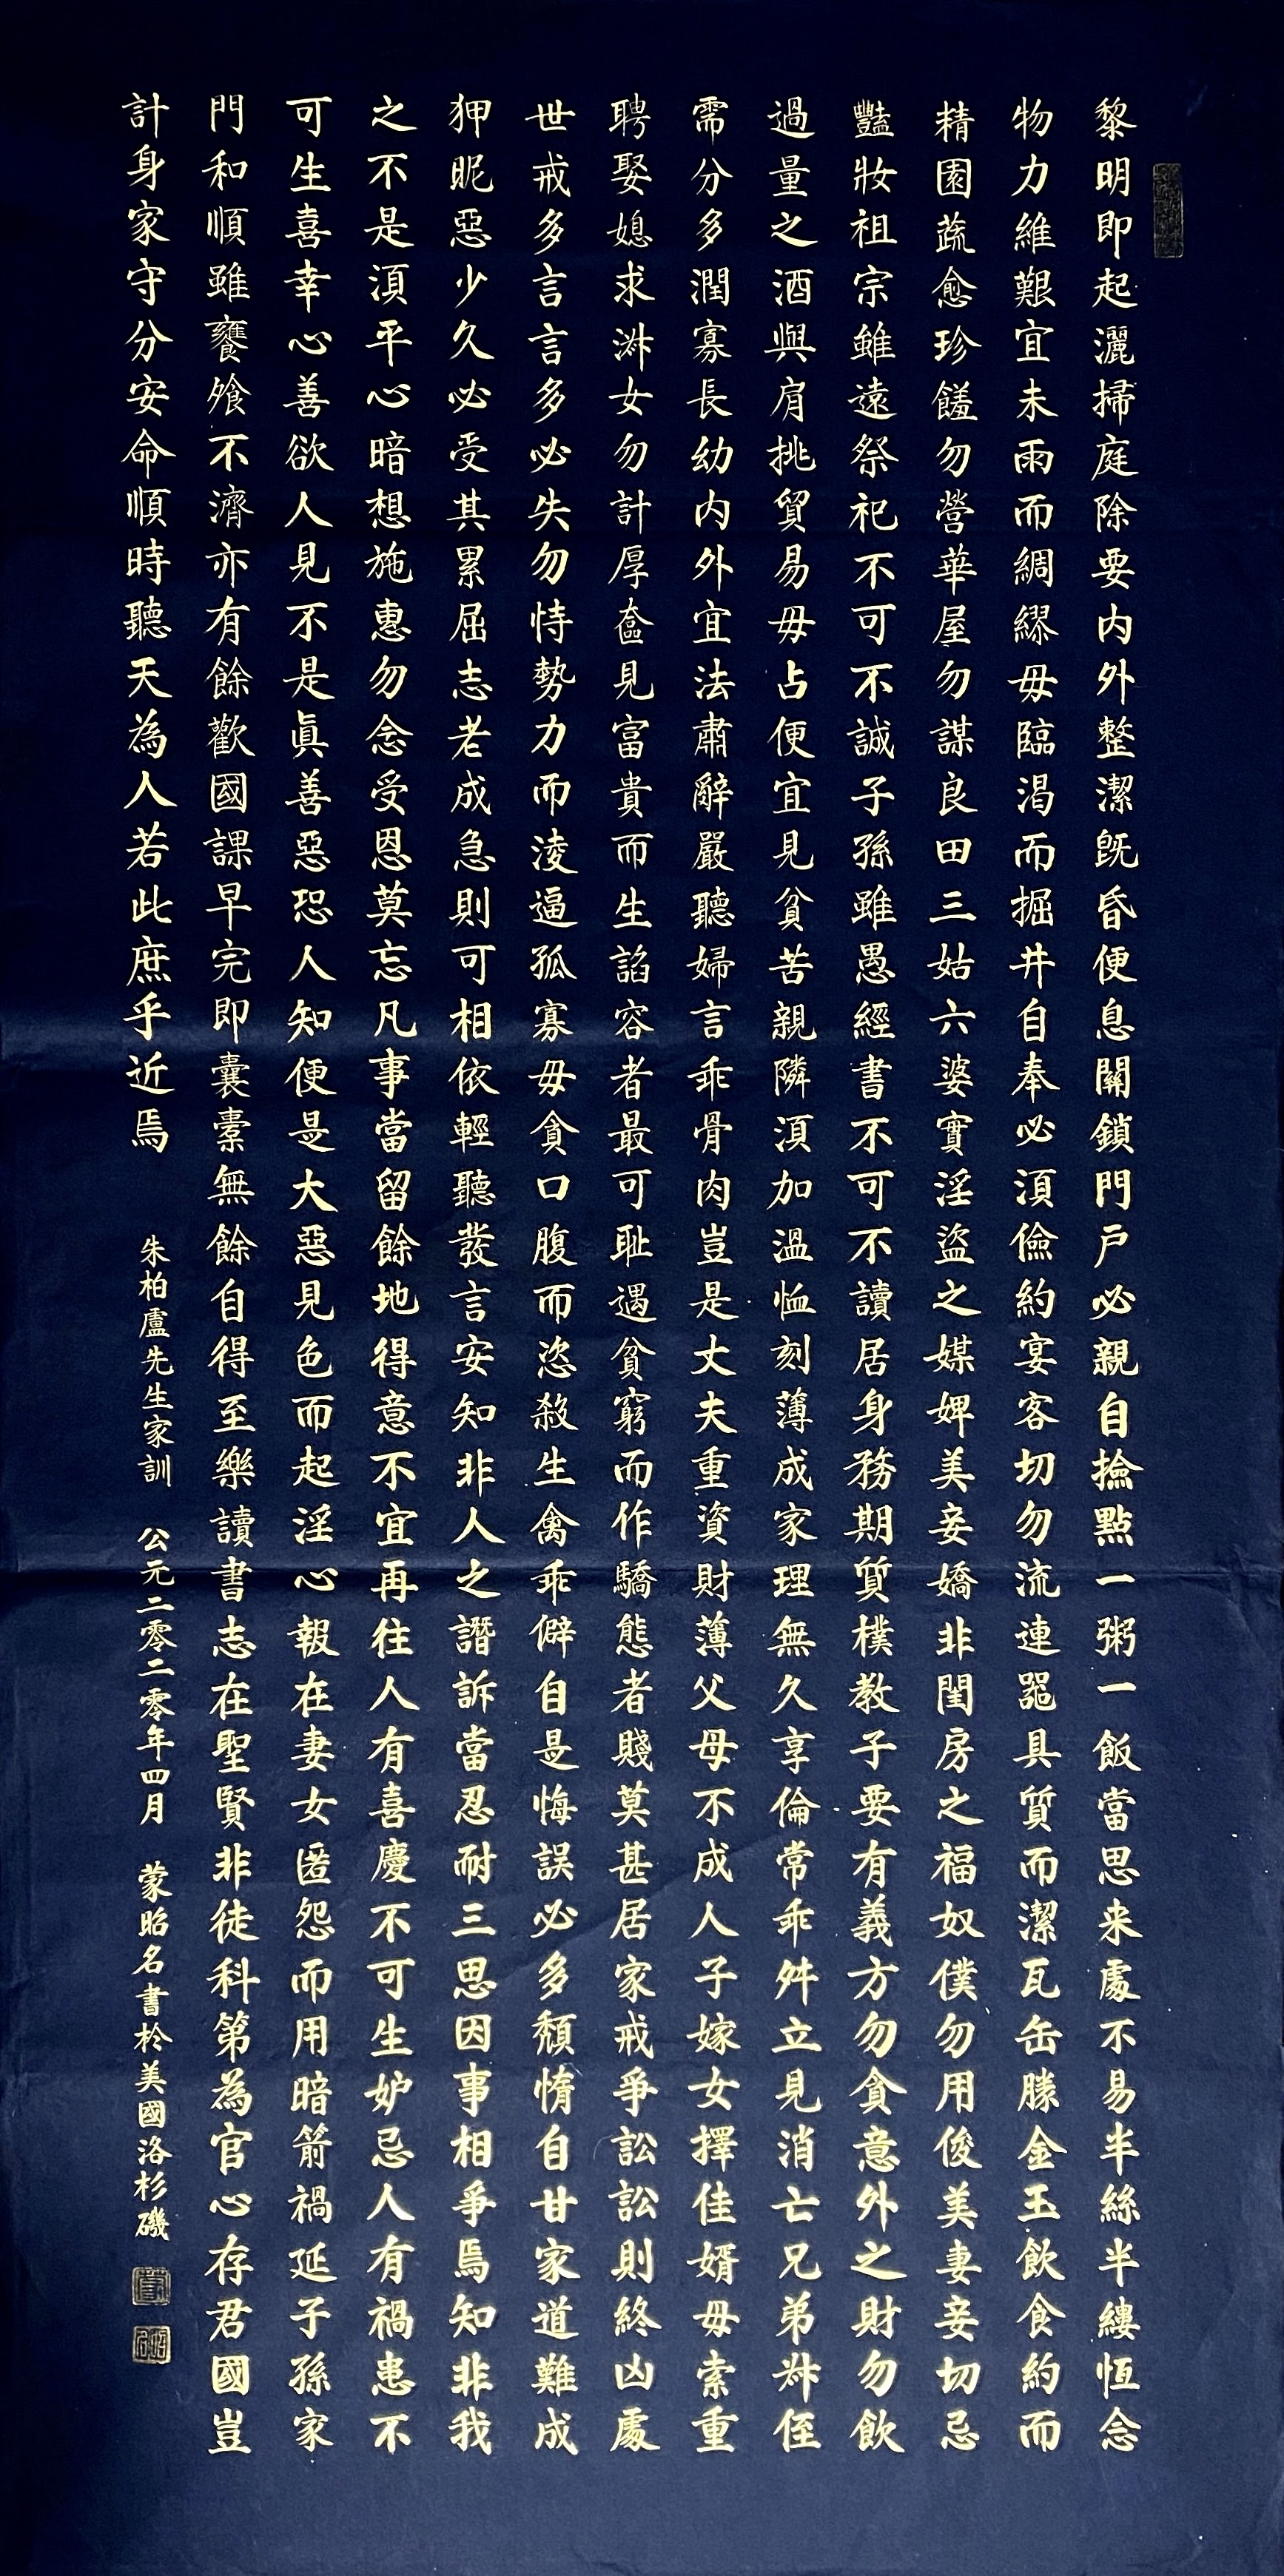 黎明即起灑掃庭除要内外整潔既昏便息關鎖門戶必親自撿點一粥一飯當思来處不易半絲半縷恆念
物力維艱宜未雨而綢繆毋臨渴而掘井自奉必須儉約宴客切勿流連器具質而潔瓦缶勝金玉飲食約而
精園蔬愈珍饈勿營華屋勿謀良田三姑六婆實淫盜之媒婢美妾嬌非閨房之福奴僕勿用俊美妻妾切忌
豔妝祖宗雖遠祭祀不可不誠子孫雖愚經書不可不讀居身務期質樸教子要有義方勿貪意外之財勿飲
過量之酒與肩挑貿易毋占便宜見貧苦親隣須加溫恤刻薄成家理無久享倫常乖舛立見消亡兄弟叔侄
需分多潤寡長幼内外宜法肅辭嚴聽婦言乖骨肉豈是丈夫重資財薄父母不成人子嫁女擇佳婿毋索重
聘娶媳求淑女勿計厚奩見富貴而生諂容者最可耻遇貧窮而作驕態者賤莫甚居家戒爭訟訟則終凶處
世戒多言言多必失勿恃勢力而淩逼孤寡毋貪口腹而恣殺生禽乖僻自是悔誤必多頹惰自甘家道難成
狎昵惡少久必受其累屈志老成急則可相依輕聽發言安知非人之譖訴當忍耐三思因事相爭焉知非我
之不是須平心暗想施惠勿念受恩莫忘凡事當留餘地得意不宜再往人有喜慶不可生妒忌人有禍患不
可生喜幸心善欲人見不是眞善惡恐人知便是大惡見色而起淫心報在妻女匿怨而用暗箭禍延子孫家
門和順雖饔飧不濟亦有餘歡國課早完即囊橐無餘自得至樂讀書志在聖賢非徒科第為官心存君國豈
計身家守分安命順時聽天為人若此庶乎近焉
朱柏盧先生家訓 公元二零二零年四月 蒙昭名書於美國洛杉磯